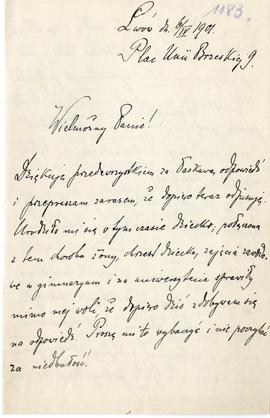 1183.
Lwów d. 6/IV 901.
Plac Unii Brzeskiej 9.
Wielmożny Panie!
Dziękuję przedewszystkiem za łaskawą odpowiedź
i przepraszam zarazem, że dopiero teraz odpisuję.
Urodziło mi się o tym czasie dziecko, połączona
z tem choroba żony, chrzest dziecka, zajęcia zawodo-
we w gimnazyum i na uniwersytecie sprawiły
mimo mej woli, że dopiero dziś zdobywam się
na odpowiedź. Proszę mi to wybaczyć i nie poczytać
za niedbałość.